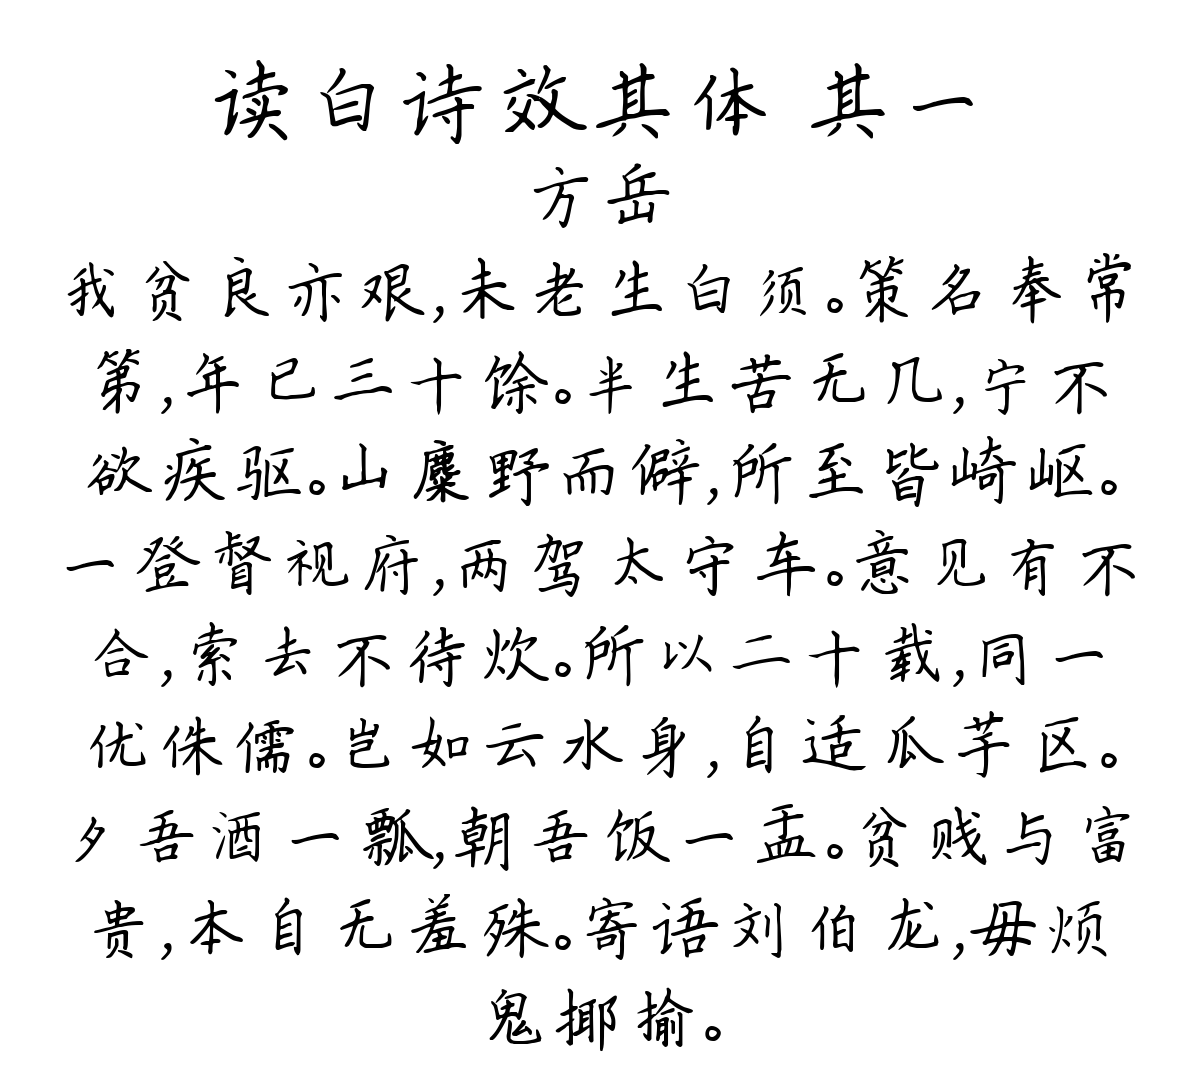 读白诗效其体 其一
方岳
我贫良亦艰,未老生白须。策名奉常
第,年已三十馀。半生苦无几,宁不
欲疾驱。山麋野而僻,所至皆崎岖。
一登督视府,两驾太守车。意见有不
合,索去不待炊。所以二十载,同一
优侏儒。岂如云水身,自适瓜芋区。
夕吾酒一瓢,朝吾饭一盂。贫贱与富
贵,本自无羞殊。寄语刘伯龙,毋烦
鬼揶揄。